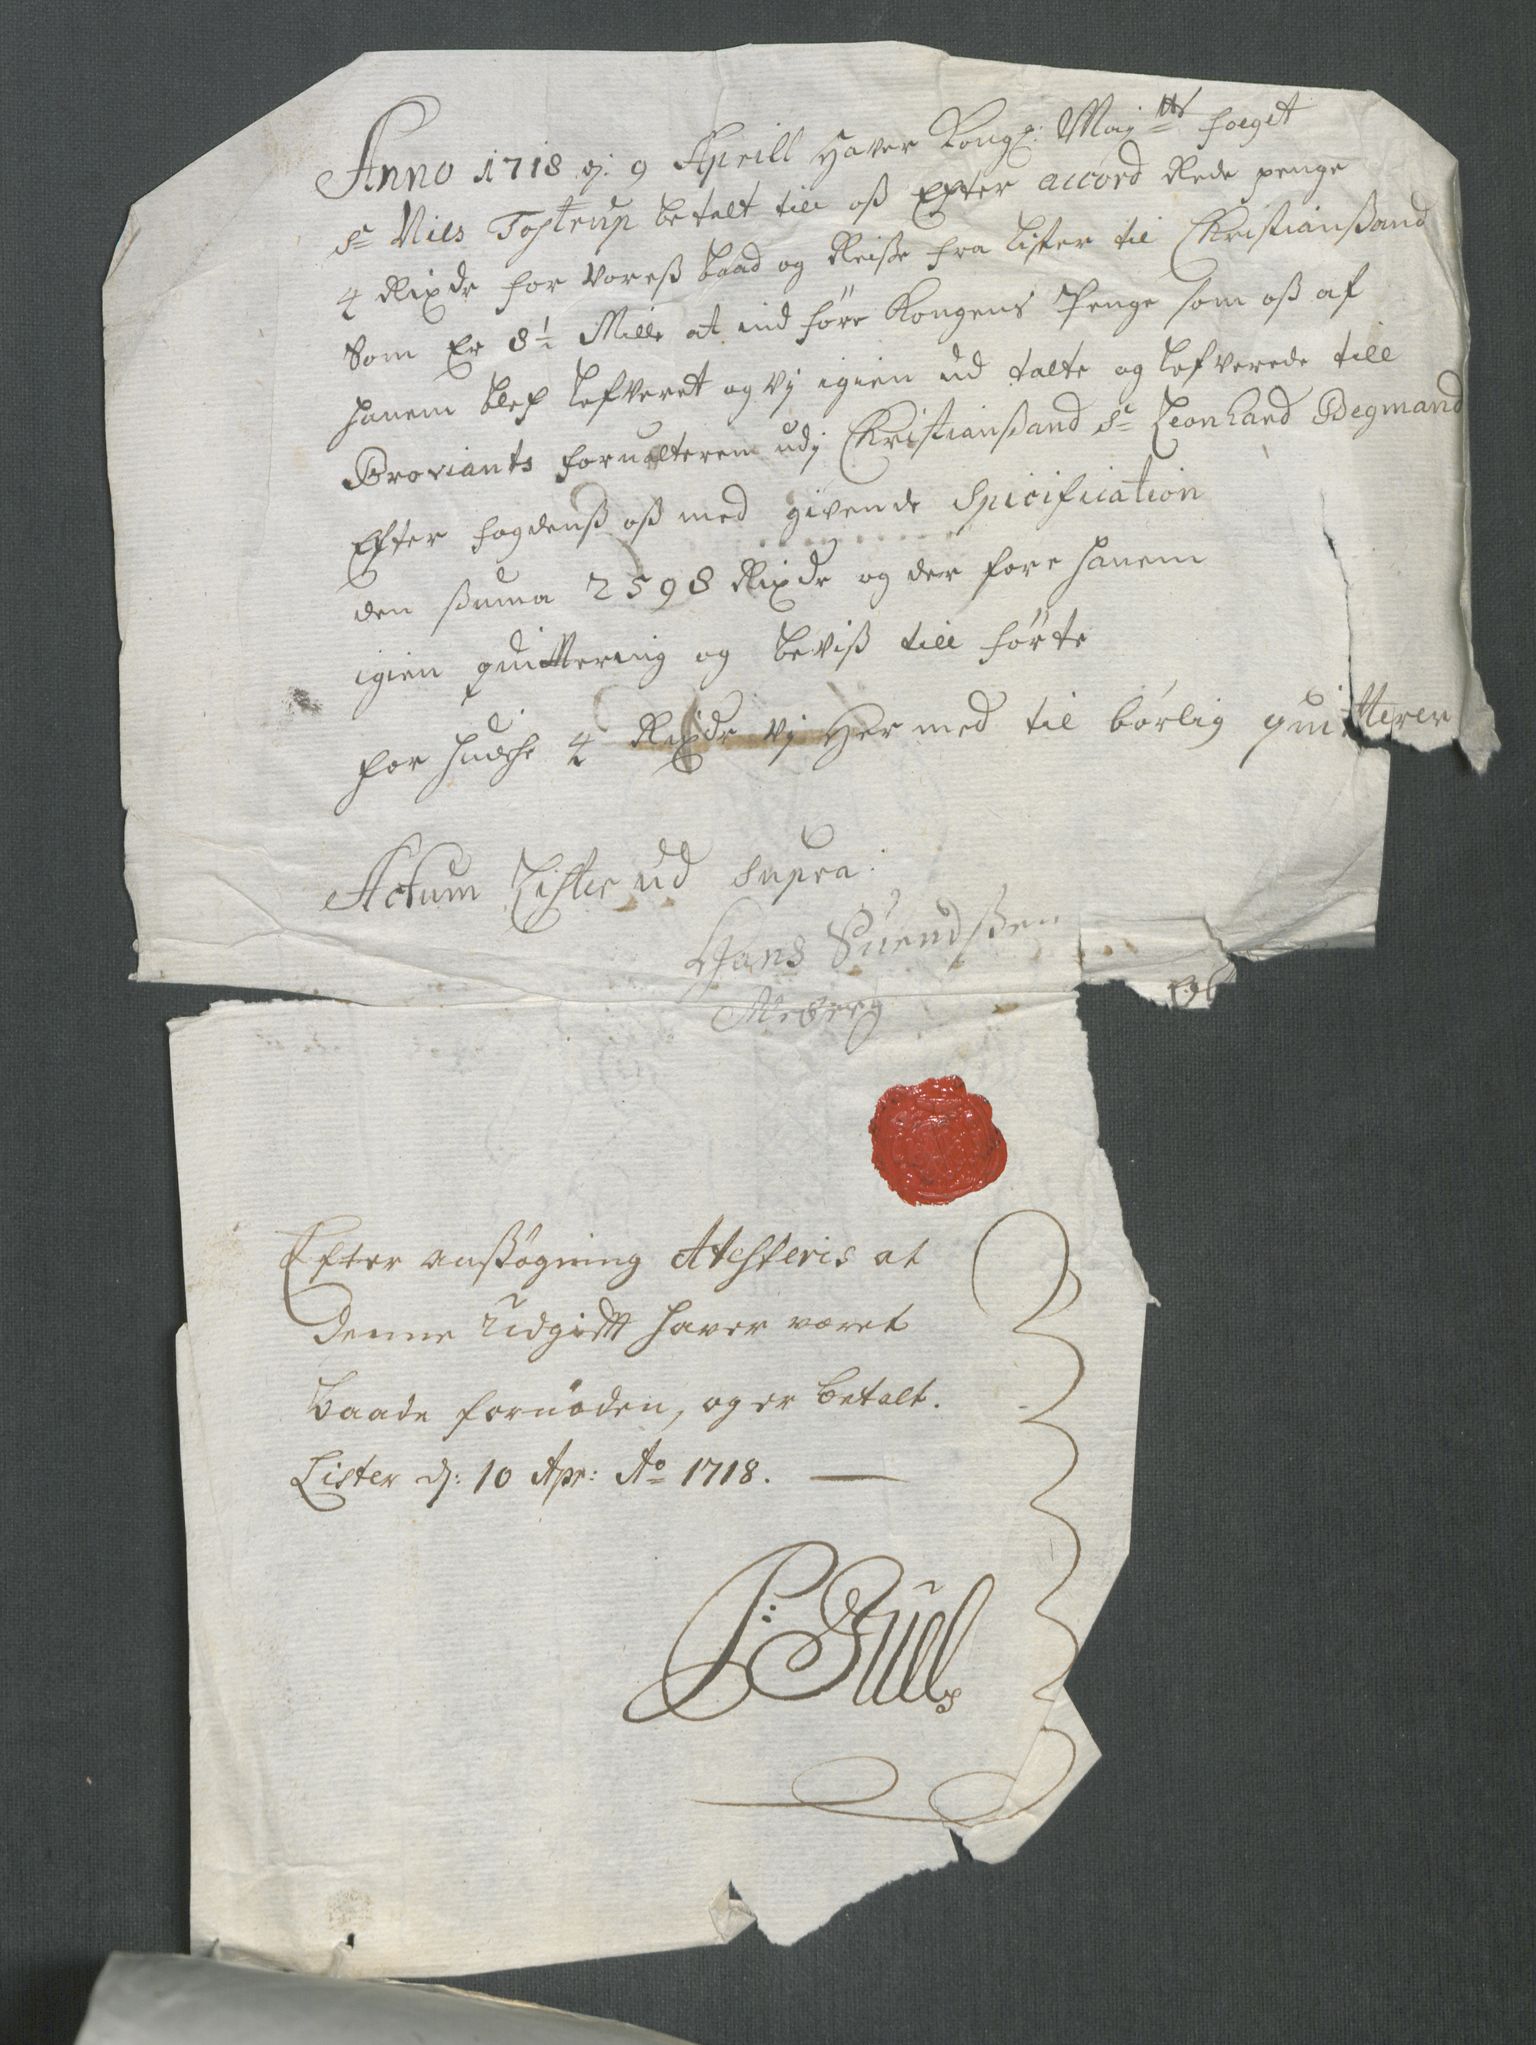 Anno 1718 dj: 9 Aprill Haver Kongl: Maj:tts foeget
Sr Niels Tostrup betalt till oß Efter accord Rede penge
4 Rixdr for voreß baad og Reiße fra Lister til Christianßand
Som Er 8½ Mille at ind före Kongens Penge som oß af
hanem blef lefveret og vj igien ud talte og lefverede till
Proviants foruulteren udj Christianßand Sr Leonhard Begmand
Efter fogdenß oß med givende Spicification
den ßuma 2598 Rixdr og der fore hanem
igien quittering og beviß till förte
for huilche 4 Rixdr vj Her med til börlig quitterer
Actum Lister ud supra:
Hans Suendßen
Meberg
Efter anßögning Attesteris at
denne Udgifft haver været
baade fornöden, og er betalt.
Lister dj: 10 Apr: Ao 1718.
P: Juel